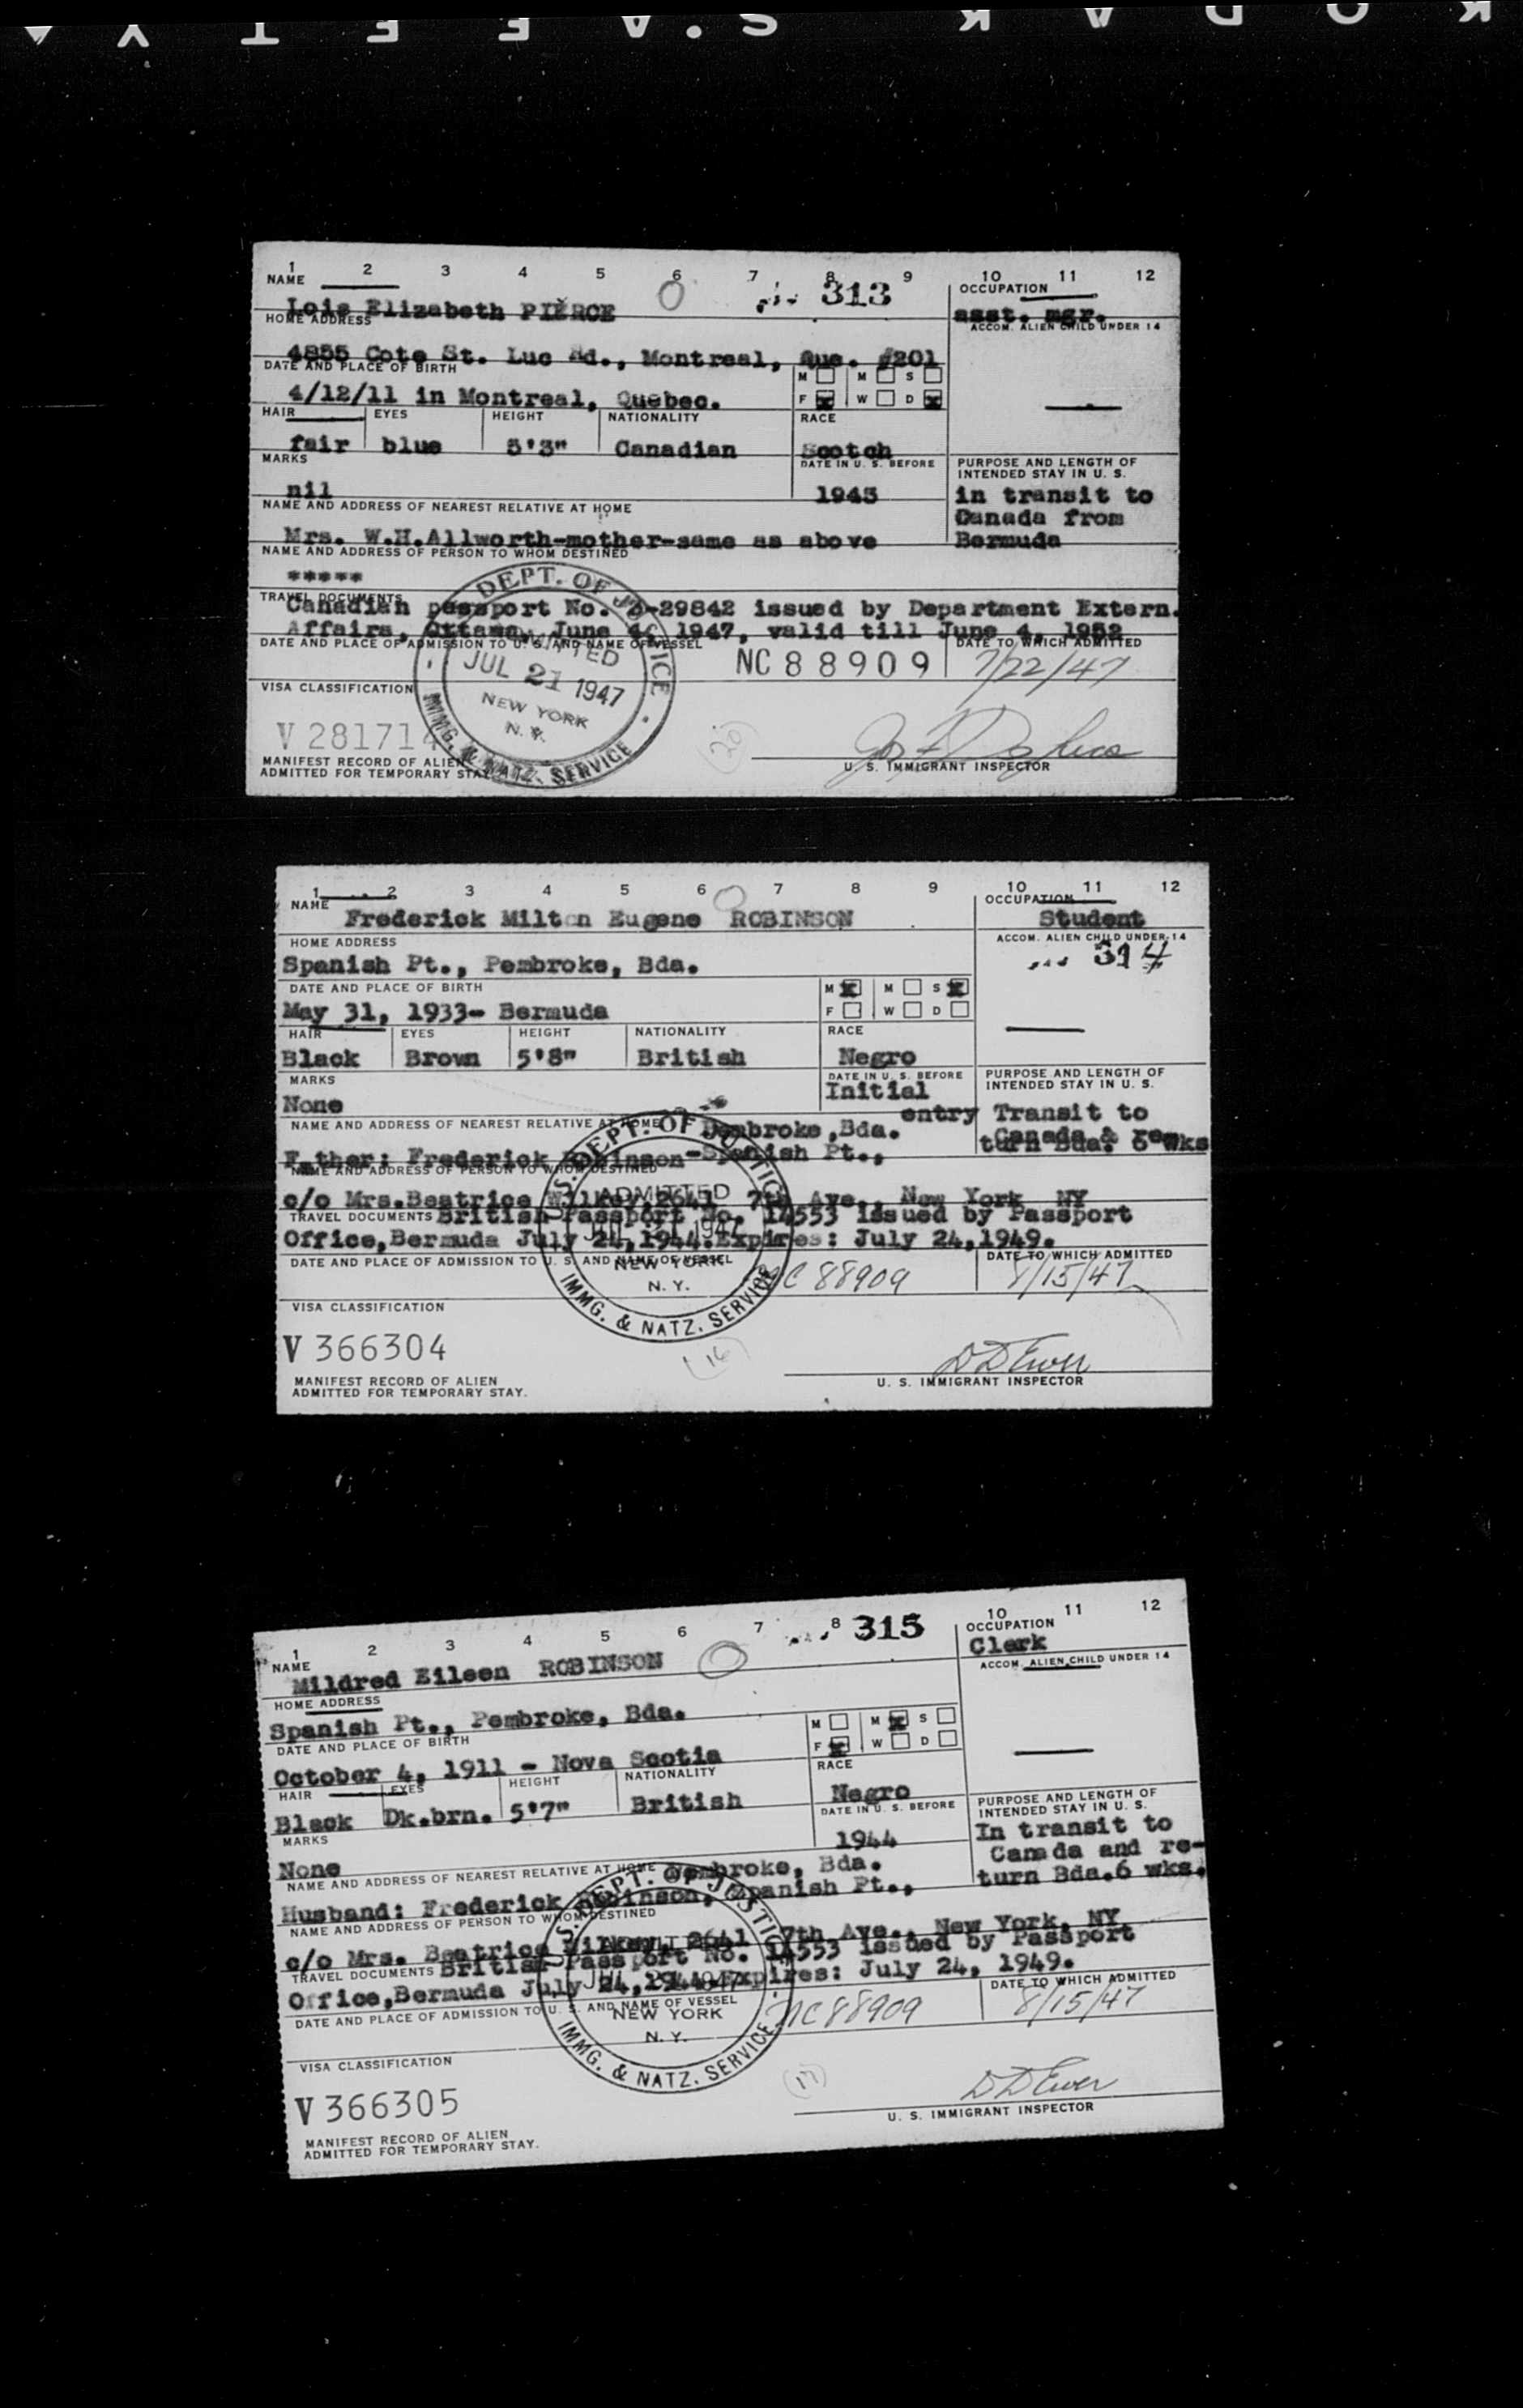 KODAK S.AFETY
1 2 3 4 5 6 7 8 9 10 11 12
NAME OCCUPATION
Lois Elizabeth PIERCE 313 asst. mgr.
HOME ADDRESS ACCOM. ALIEN CHILD UNDER 14
4855 Cote St. Luc Rd., Montreal, Que. #201
DATE AND PLACE OF BIRTH M M S
4/12/11 in Montreal, Quebec. F W D
HAIR EYES HEIGHT NATIONALITY RACE
fair blue 5'3" Canadian Scotch
MARKS DATE IN U. S. BEFORE PURPOSE AND LENGTH OF INTENDED STAY IN U. S.
nil 1945 in transit to
NAME AND ADDRESS OF NEAREST RELATIVE AT HOME Canada from
Mrs. W.H.Allworth-mother-same as above Bermuda
NAME AND ADDRESS OF PERSON TO WHOM DESTINED
*****
TRAVEL DOCUMENTS
Canadian passport No. -29842 issued by Department Extern.
Affairs, Ottawa, June 4, 1947, valid till June 4, 1952
DATE AND PLACE OF ADMISSION TO U. S. AND NAME OF VESSEL DATE TO WHICH ADMITTED
NC 88909 7/22/47
DEPT. OF JUSTICE
ADMITTED
JUL 21 1947
NEW YORK
N. Y.
IMMG. & NATZ. SERVICE
VISA CLASSIFICATION
V 281714 (20)
MANIFEST RECORD OF ALIEN U. S. IMMIGRANT INSPECTOR
ADMITTED FOR TEMPORARY STAY
1 2 3 4 5 6 7 8 9 10 11 12
NAME OCCUPATION
Frederick Milton Eugene ROBINSON Student
HOME ADDRESS ACCOM. ALIEN CHILD UNDER 14
Spanish Pt., Pembroke, Bda. 314
DATE AND PLACE OF BIRTH M M S
May 31, 1933- Bermuda F W D
HAIR EYES HEIGHT NATIONALITY RACE
Black Brown 5'8" British Negro
MARKS DATE IN U. S. BEFORE PURPOSE AND LENGTH OF INTENDED STAY IN U. S.
None Initial entry Transit to
NAME AND ADDRESS OF NEAREST RELATIVE AT HOME Pembroke,Bda. Canada & re-
Father: Frederick Robinson-Spanish Pt., turn Bda. 6 wks
NAME AND ADDRESS OF PERSON TO WHOM DESTINED
c/o Mrs.Beatrice Wilkey,2641 7th Ave., New York NY
TRAVEL DOCUMENTS British Passport No. 14553 issued by Passport
Office,Bermuda July 24,1944.Expires: July 24,1949.
DATE AND PLACE OF ADMISSION TO U. S. AND NAME OF VESSEL DATE TO WHICH ADMITTED
NC 88909 8/15/47
U.S. DEPT. OF JUSTICE
ADMITTED
JUL 21 1947
NEW YORK
N. Y.
IMMG. & NATZ. SERVICE
VISA CLASSIFICATION
V 366304 (16) D D Ewer
MANIFEST RECORD OF ALIEN U. S. IMMIGRANT INSPECTOR
ADMITTED FOR TEMPORARY STAY.
1 2 3 4 5 6 7 8 315 10 11 12
NAME OCCUPATION
Mildred Eileen ROBINSON Clerk
HOME ADDRESS ACCOM. ALIEN CHILD UNDER 14
Spanish Pt., Pembroke, Bda.
DATE AND PLACE OF BIRTH M M S
October 4, 1911 - Nova Scotia F W D
HAIR EYES HEIGHT NATIONALITY RACE
Black Dk.brn. 5'7" British Negro
MARKS DATE IN U. S. BEFORE PURPOSE AND LENGTH OF INTENDED STAY IN U. S.
None 1944 In transit to
NAME AND ADDRESS OF NEAREST RELATIVE AT HOME Pembroke, Bda. Canada and re-
Husband: Frederick Robinson, Spanish Pt., turn Bda.6 wks.
NAME AND ADDRESS OF PERSON TO WHOM DESTINED
c/o Mrs. Beatrice Wilkey, 2641 7th Ave., New York, NY
TRAVEL DOCUMENTS British Passport No. 14553 issued by Passport
Office,Bermuda July 24,1944.Expires: July 24, 1949.
DATE AND PLACE OF ADMISSION TO U. S. AND NAME OF VESSEL DATE TO WHICH ADMITTED
NC 88909 8/15/47
U.S. DEPT. OF JUSTICE
NEW YORK
N. Y.
IMMG. & NATZ. SERVICE
VISA CLASSIFICATION
V 366305 (17) D D Ewer
MANIFEST RECORD OF ALIEN U. S. IMMIGRANT INSPECTOR
ADMITTED FOR TEMPORARY STAY.